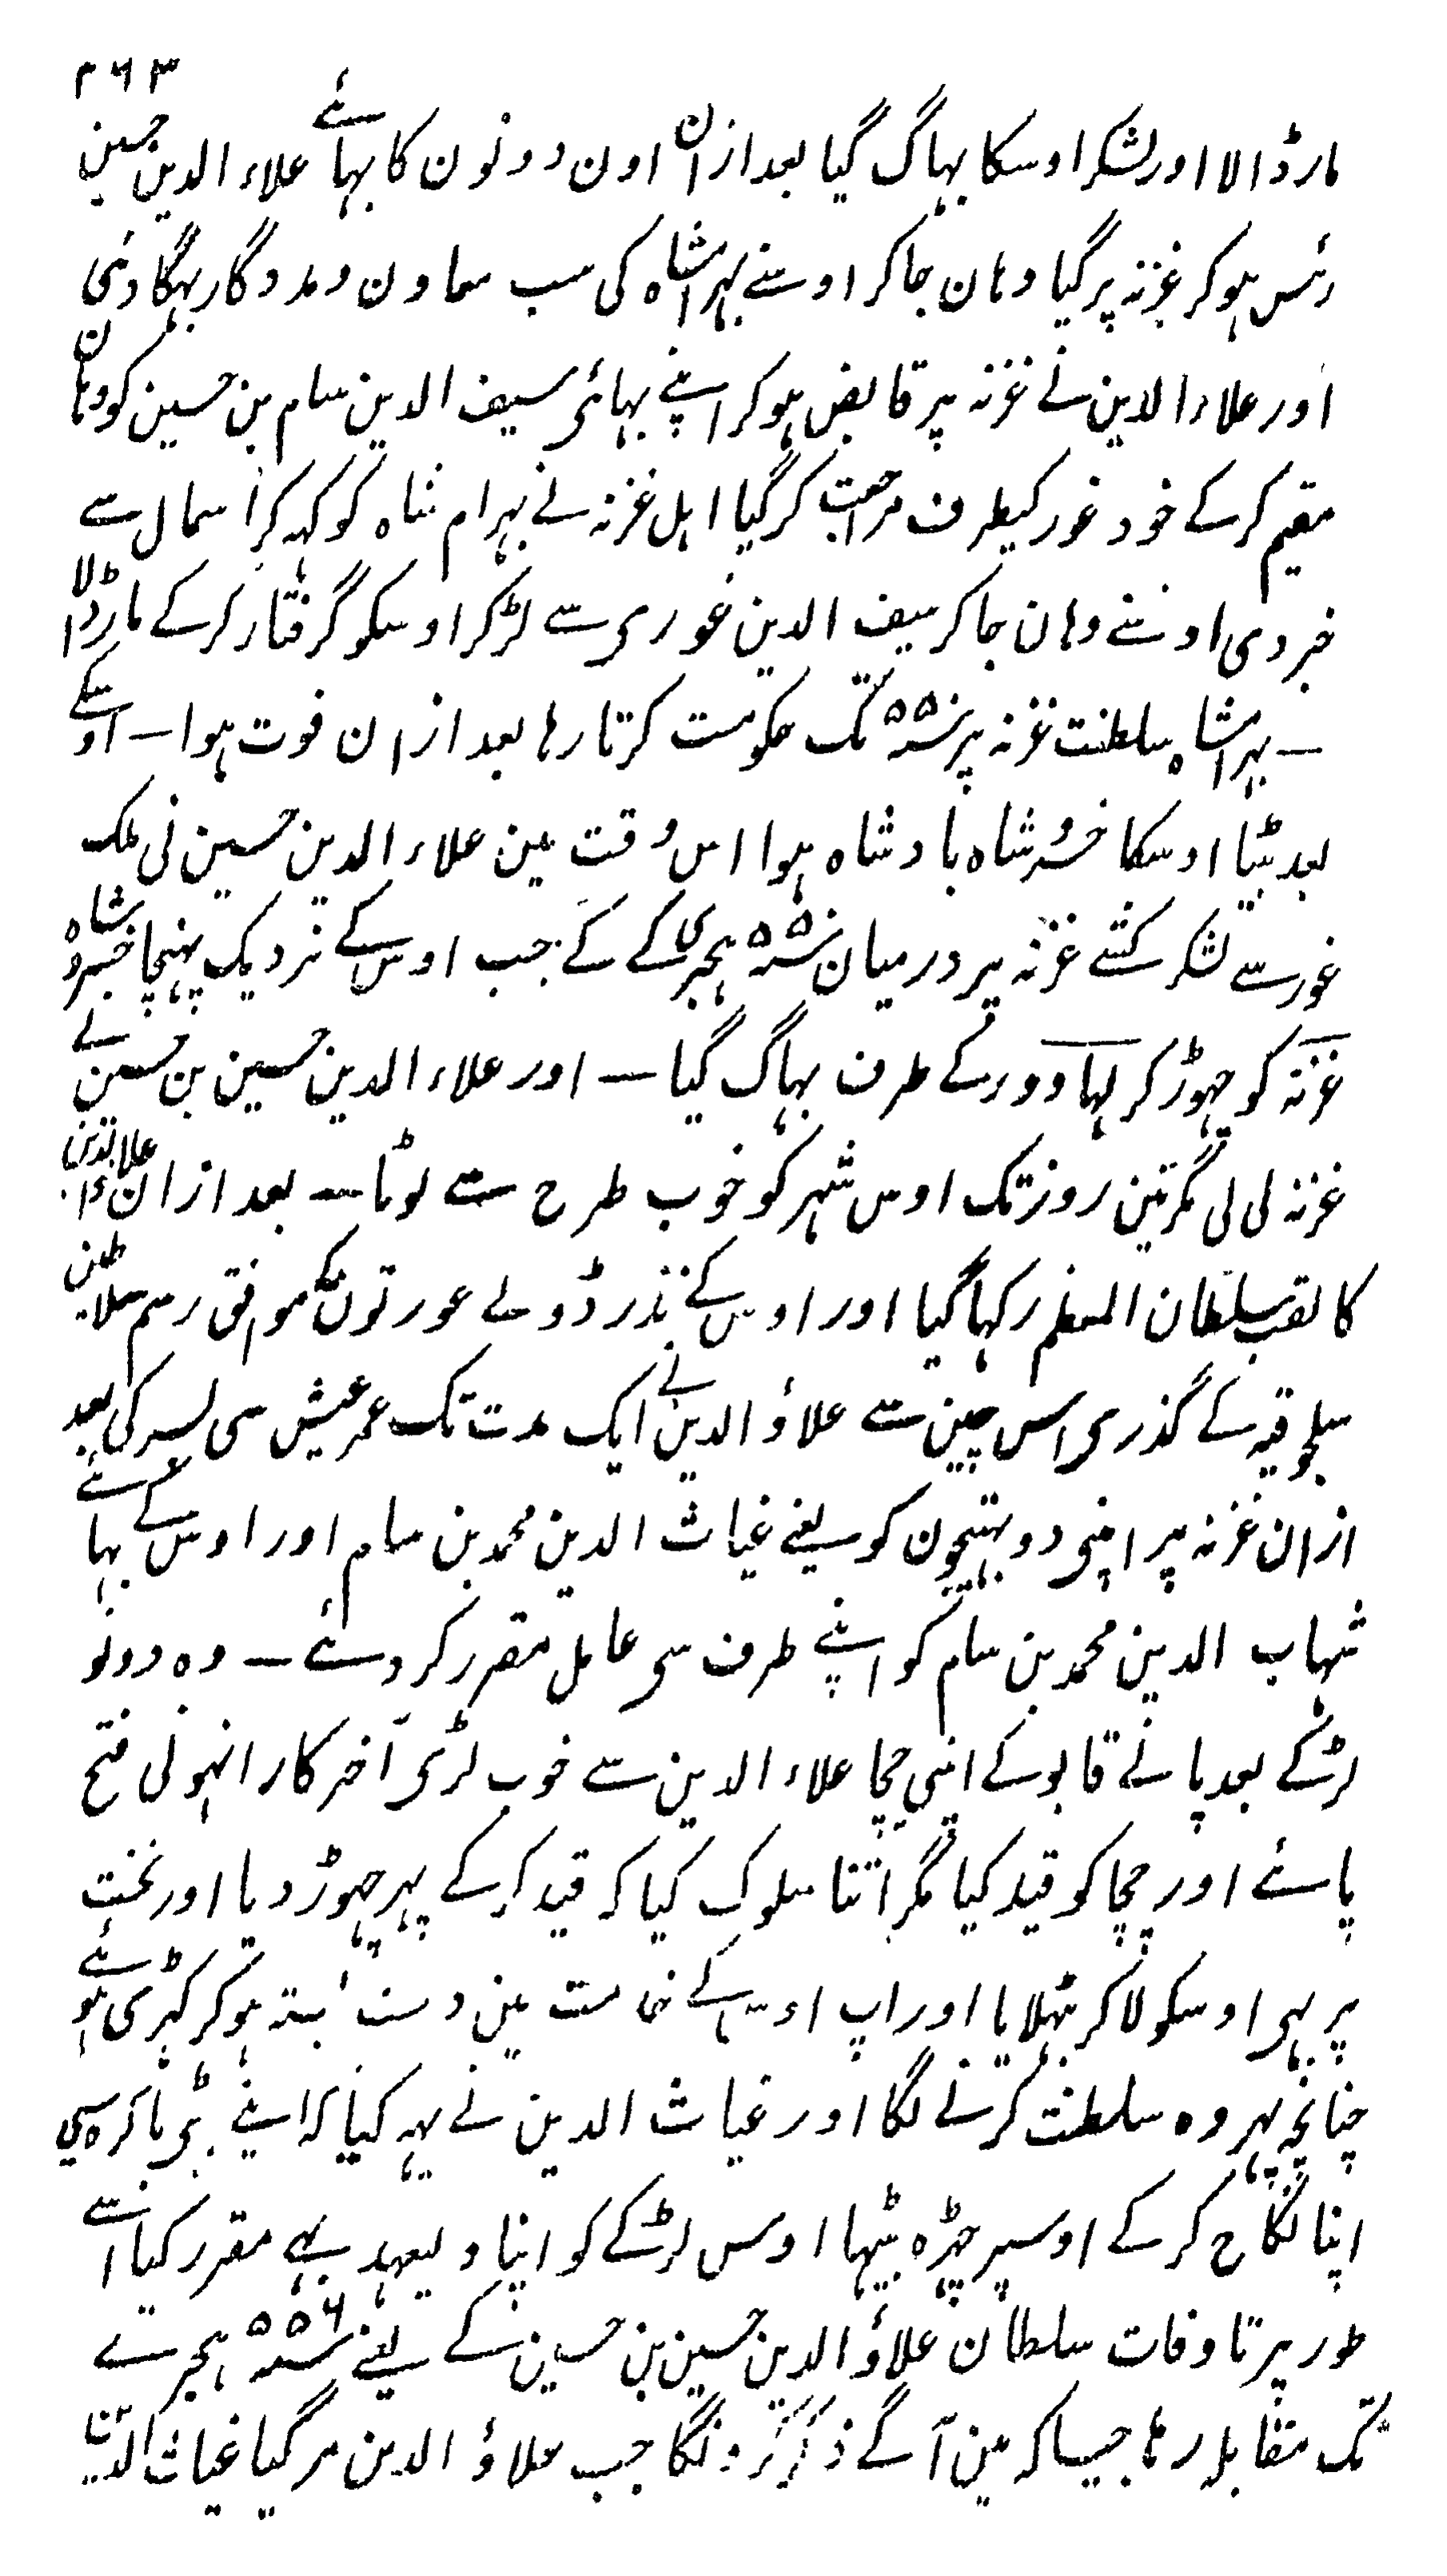 ۲۶۳
مارڈالا اور لشکر اوسکا بہاگ گیا بعد ازان اون دونون کا بہائے علاء الدین حسین
رئس ہوکر غزنہ پر گیا وہان جاکر اوسنے بہرامشاہ کی سب معاون و مددگار بہگا دئی
اور علاء الدین نے غزنہ پر قابض ہوکر اپنے بہائی سیف الدین سام بن حسین کو وہان
مقیم کرکے خود غور کیطرف مراجعت کرگیا اہل غزنہ نے بہرام شاہ کو کہہ کر اسمال سے
خبر دی اوسنے وہان جاکر سیف الدین غوری سے لڑکر اوسکو گرفتار کرکے مارڈالا
— بہرامشاہ سلطنت غزنہ پر سنہ ۵۵ تک حکومت کرتا رہا بعد ازان فوت ہوا — اوسکے
بعد بیٹا اوسکا خسروشاہ بادشاہ ہوا اس وقت مین علاء الدین حسین نی ملک
غور سے لشکر کشے غزنہ پر درمیان سنہ ۵۵ ہجری کے کے جب اوس کے نزدیک پہنچا خسروشاہ
غزنہ کو چہوڑکر لہاوور کے طرف بہاگ گیا — اور علاء الدین حسین بن حسین نے
غزنہ لی لی مگر تین روز تک اوس شہر کو خوب طرح سے لوٹا — بعد ازان علاء الدین
کا لقب سلطان المعظم رکہا گیا اور اوس کے نذر ڈولے عورتون کے موافق رسم سلاطین
سلجوقیہ کے گذری اس چین سے علاؤ الدین نے ایک مدت تک عمر عیش سی بسر کی بعد
ازان غزنہ پر اپنی دو بہتیجون کو یعنے غیاث الدین محمد بن سام اور اوس کے بہائے
شہاب الدین محمد بن سام کو اپنے طرف سی عامل مقرر کردئے — وہ دونو
لڑکے بعد پانے قابو کے اپنی چچا علاء الدین سے خوب لڑی آخرکار انہونی فتح
پائے اور چچا کو قید کیا مگر اتنا سلوک کیا کہ قید کرکے پہر چہوڑ دیا اور تخت
پر بہی اوسکو لاکر بٹہلایا اور اپ اوس کے خدمت مین دست بستہ ہوکر کہڑی ہوئے
چنانچہ پہر وہ سلطنت کرنے لگا اور غیاث الدین نے یہہ کیا کہ اپنے بیٹی باکرہ سی
اپنا نکاح کرکے اوسپر چڑہ بیٹہا اوس لڑکے کو اپنا ولیعہد بہی مقرر کیا اسے
طور پر تا وفات سلطان علاؤ الدین حسین بن حسین کے یعنے سنہ ۵۵۶ ہجرے
تک مقابلہ رہا جیسا کہ مین آگے ذکر کرونگا جب علاؤ الدین مرگیا غیاث الدین